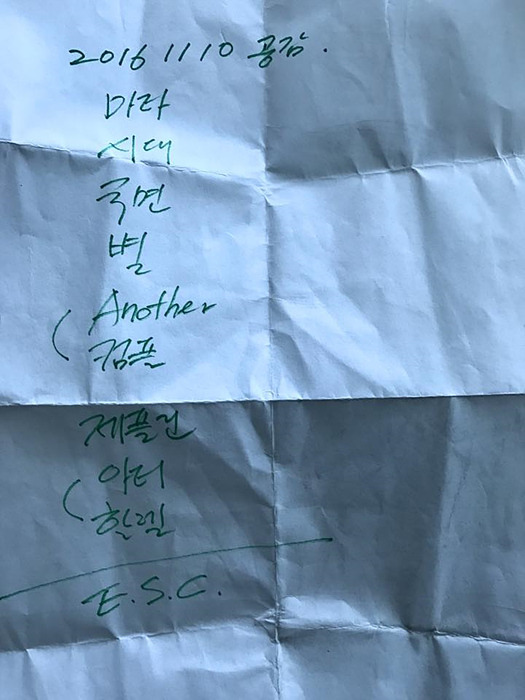 2016 11 10 공감.
마라
시대
국면
별
Another
컴플
제플린
아터
할렐
E.S.C.